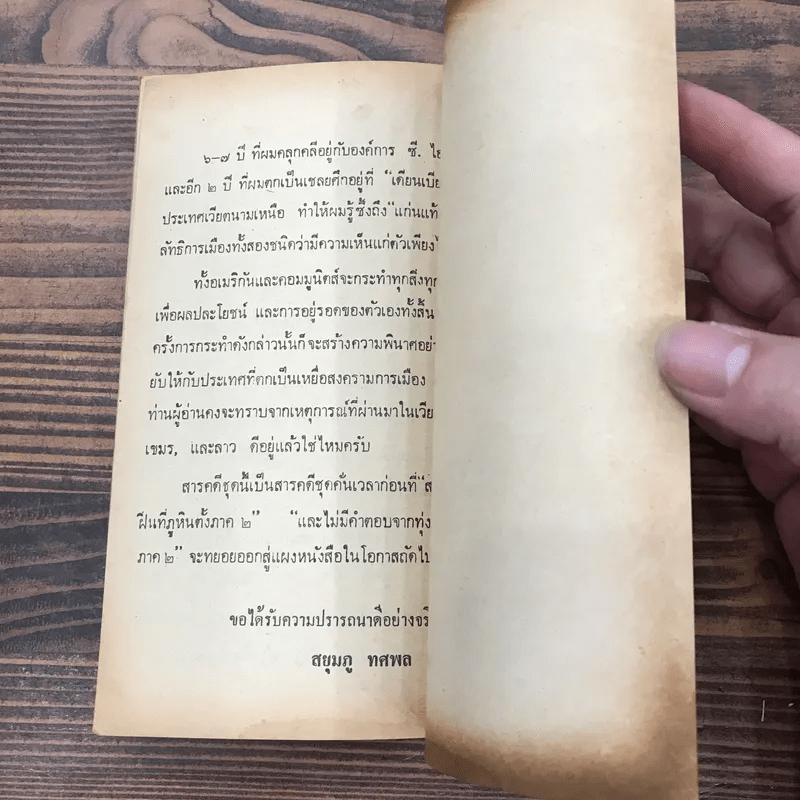 ๖–๗ ปี ที่ผมคลุกคลีอยู่กับองค์การ ซี. ไอ
และอีก ๒ ปี ที่ผมตกเป็นเชลยศึกอยู่ที่ “เดียนเบีย
ประเทศเวียตนามเหนือ ทำให้ผมรู้ซึ้งถึง“แก่นแท้
ลัทธิการเมืองทั้งสองชนิดว่ามีความเห็นแก่ตัวเพียงไ
ทั้งอเมริกันและคอมมูนิสต์จะกระทำทุกสิ่งทุก
เพื่อผลประโยชน์ และการอยู่รอดของตัวเองทั้งสิ้น
ครั้งการกระทำดังกล่าวนั้นก็จะสร้างความพินาศอย่า
ยับให้กับประเทศที่ตกเป็นเหยื่อสงครามการเมือง
ท่านผู้อ่านคงจะทราบจากเหตุการณ์ที่ผ่านมาในเวีย
เขมร, และลาว ดีอยู่แล้วใช่ไหมครับ
สารคดีชุดนี้เป็นสารคดีชุดคั่นเวลาก่อนที่“ส
ฝีนที่ภูหินตั้งภาค ๒” “และไม่มีคำตอบจากทุ่ง
ภาค ๒” จะทยอยออกสู่แผงหนังสือในโอกาสถัดไป
ขอได้รับความปรารถนาดีอย่างจริ
สยุมภู ทศพล